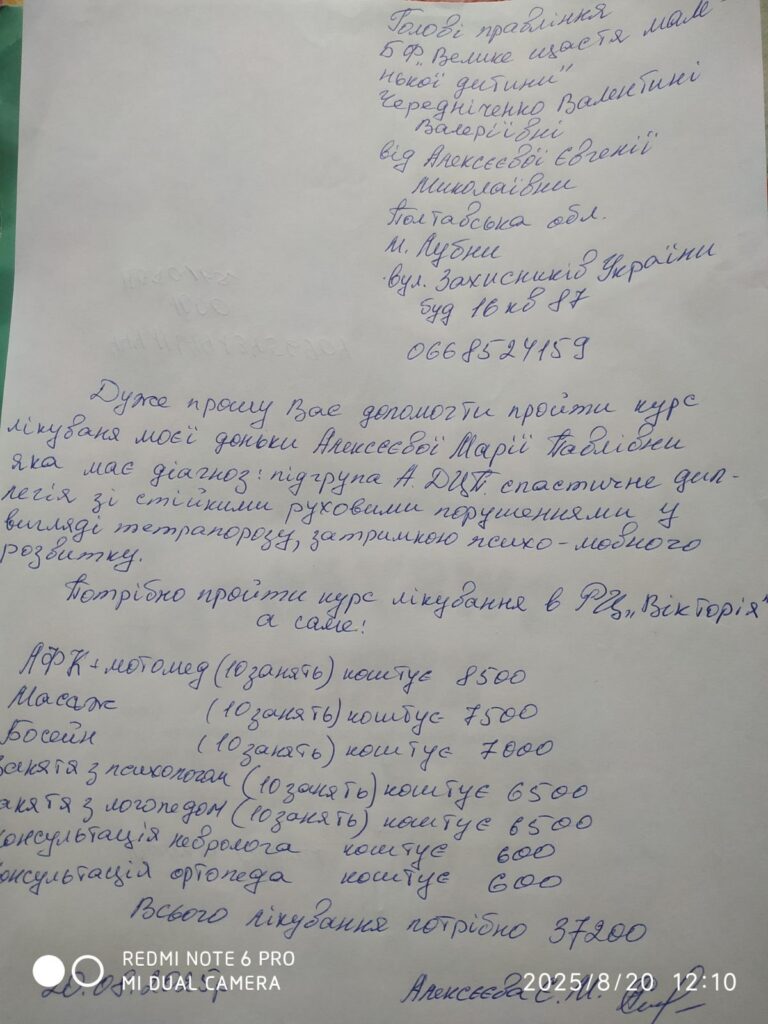 Голові правління
БФ „Велике щастя мале-
нької дитини"
Чередніченко Валентині
Валеріївні
від Алексєєвої Євгенії
Миколаївни
Полтавська обл.
м. Лубни
вул. Захисників України
буд 16 кв 87
0668524159
Дуже прошу Вас допомогти пройти курс
лікуваня моєї доньки Алексєєвої Марії Павлівни
яка має діагноз: підгрупа А. ДЦП. спастичне дип-
легія зі стійкими руховими порушеннями у
вигляді тетрапорозу, затримкою психо-мовного
розвитку.
Потрібно пройти курс лікування в РЦ „Вікторія"
а саме:
АФК + мотомед (10 занять) коштує 8500
Масаж (10 занять) коштує 7500
Босейн (10 занять) коштує 7000
Занятя з психологом (10 занять) коштує 6500
анятя з логопедом (10 занять) коштує 6500
онсультація невролога коштує 600
онсультація ортопеда коштує 600
Всього лікування потрібно 37200
20.08.2025р Алексєєва Є.М.
REDMI NOTE 6 PRO
MI DUAL CAMERA
2025/8/20 12:10